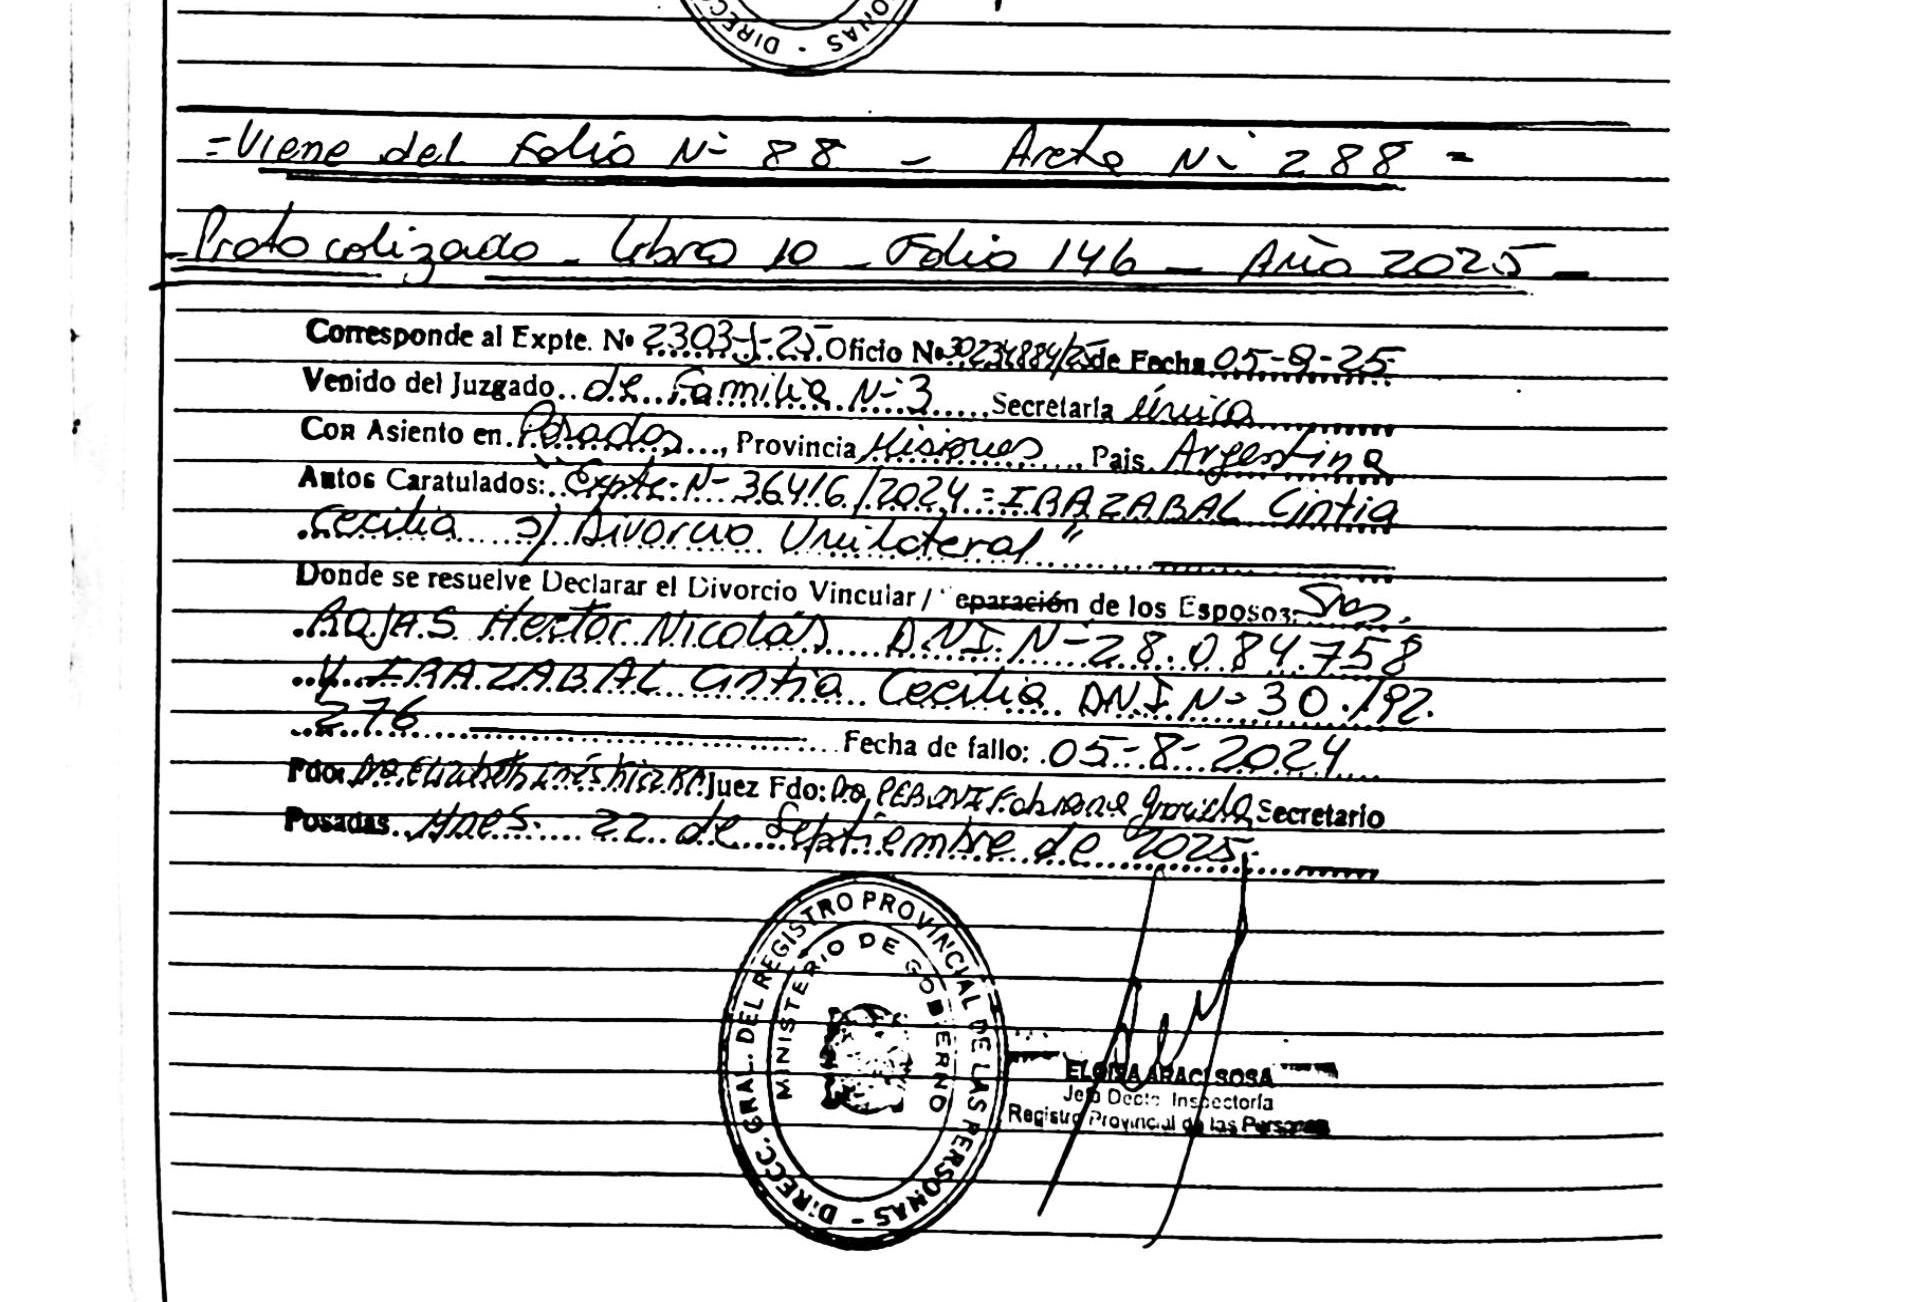 DIRECC
ONAS - DIREC
=Viene del Folio Nº 88 - Acta Nº 288 =
-Protocolizado - Libro 10 - Folio 146 - Año 2025 -
Corresponde al Expte. Nº 2303-J-25 Oficio Nº 30234884/25 de Fecha 05-9-25
Venido del Juzgado de Familia Nº 3, Secretaría Única
Con Asiento en Posadas, Provincia Misiones, Pais Argentina
Autos Caratulados: "Expte. Nº 36416/2024 = IRAZABAL Cintia
Cecilia s/ Divorcio Unilateral"
Donde se resuelve Declarar el Divorcio Vincular / eparación de los Esposos: Sres.
ROJAS Hector Nicolás D.N.I. Nº 28.084.758
y IRAZABAL Cintia Cecilia D.N.I Nº 30.192.
276 Fecha de fallo: 05-8-2024
Fdo: Dra. Juez Fdo: Dra. Secretario
Posadas, Mnes. 22 de Septiembre de 2025
DIRECC. GRAL. DEL REGISTRO PROVINCIAL DE LAS PERSONAS -
MINISTERIO DE GOBIERNO
SOSA
Jefa Dpcto Inspectoría
Registro Provincial de las Personas